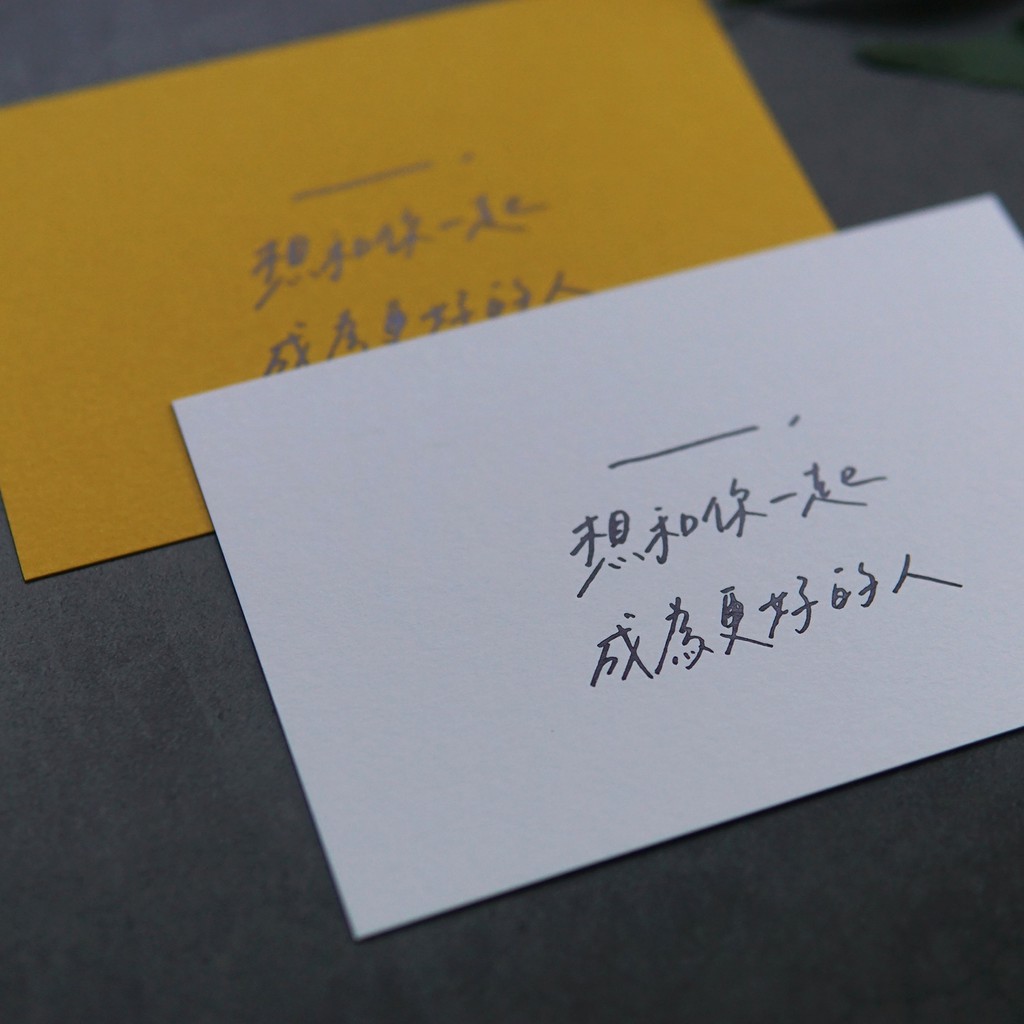 想和你一起
成為更好的人
想和你一起
成為更好的人